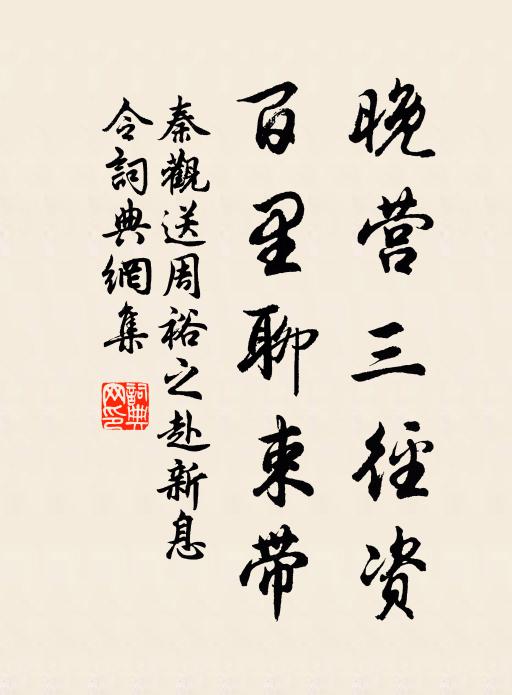 晚营三径资
百里聊束带
秦觀送周裕之赴新息
令詞典網集
詞典网印